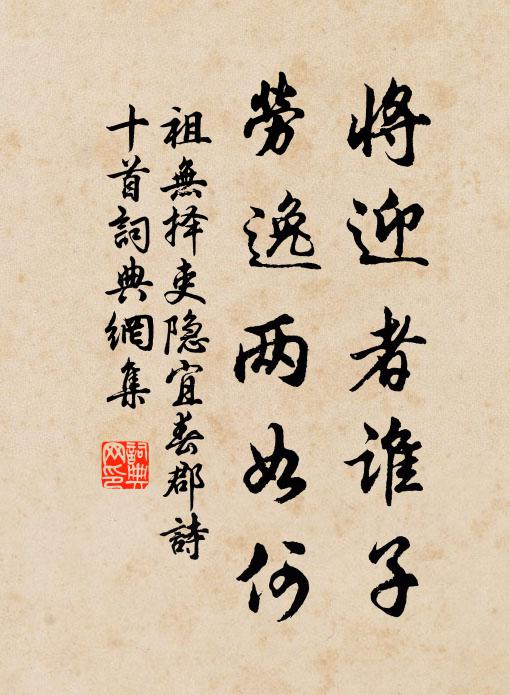 将迎者谁子
劳逸两如何
祖無择吏隐宜春郡詩
十首詞典網集
詞典
网印